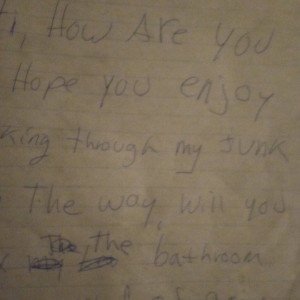 Hi, How Are you
Hope you enjoy
king through my Junk
The way, will you
The, the bathroom